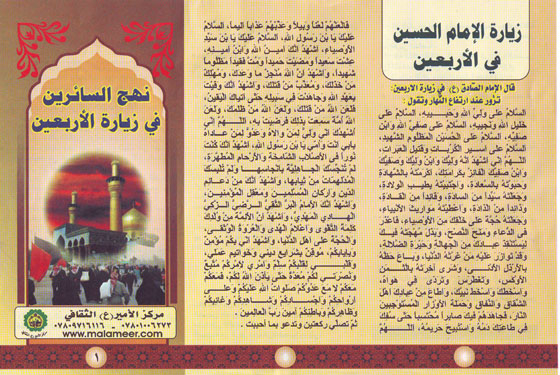 زيارة الإمام الحسين
في الأربعين
قال الإمام الصّادق (ع) في زيارة الأربعين:
تزُور عند ارتفاع النّهار وتقول:
السّلامُ على وليّ الله وحبيبه، السّلامُ على
خليل الله ونجيبه، السّلامُ على صفيّ الله وابن
صفيّه، السّلامُ على الحُسين المظلوم الشّهيد،
السّلامُ على اسير الكُرُبات وقتيل العبرات،
اللهُمّ انّي اشهدُ انّهُ وليّك وابنُ وليّك وصفيّك
وابنُ صفيّك الفائزُ بكرامتك، اكرمتهُ بالشّهادة
وحبوتهُ بالسّعادة، واجتبيتهُ بطيب الولادة،
وجعلتهُ سيّداً من السادة، وقائداً من القادة،
وذائداً من الذادة، واعطيتهُ مواريث الأنبياء،
وجعلتهُ حُجّة على خلقك من الأوصياء، فأعذر
في الدّعاء ومنح النُّصح، وبذل مُهجتهُ فيك
ليستنقذ عبادك من الجهالة وحيرة الضّلالة،
وقد توازر عليه من غرّتهُ الدُّنيا، وباع حظّهُ
بالأرذل الأدنى، وشرى آخرتهُ بالثّمن
الأوكس، وتغطرس وتردّى في هواهُ،
واسخطك واسخط نبيّك، واطاع من عبادك اهل
الشّقاق والنّفاق وحملة الأوزار المُستوجبين
النّار، فجاهدهُم فيك صابراً مُحتسباً حتّى سُفك
في طاعتك دمُهُ واستُبيح حريمُهُ، اللهُمّ
فالعنهُم لعناً وبيلاً وعذّبهُم عذاباً اليماً، السّلامُ
عليك يا بن رسُول الله، السّلامُ عليك يا بن سيّد
الأوصياء، اشهدُ انّك امينُ الله وابنُ امينه،
عشت سعيداً ومضيت حميداً ومُتّ فقيداً مظلُوماً
شهيداً، واشهدُ انّ الله مُنجزٌ ما وعدك، ومُهلكٌ
من خذلك، ومُعذّبٌ من قتلك، واشهدُ انّك وفيت
بعهد الله وجاهدت في سبيله حتّى اتاك اليقينُ،
فلعن اللهُ من قتلك، ولعن اللهُ من ظلمك، ولعن
اللهُ اُمّةً سمعت بذلك فرضيت به، اللهُمّ انّي
اُشهدُك انّي وليٌّ لمن والاهُ وعدُوٌّ لمن عاداهُ
بابي انت واُمّي يا بن رسُول الله، اشهدُ انّك كُنت
نُوراً في الأصلاب الشّامخة والأرحام المُطهّرة،
لم تُنجّسك الجاهليّةُ بأنجاسها ولم تُلبسك
المُدلهمّاتُ من ثيابها، واشهدُ انّك من دعائم
الدّين واركان المُسلمين ومعقل المُؤمنين،
واشهدُ انّك الإمامُ البرُّ التّقيُّ الرّضيُّ الزّكيُّ
الهادي المهديُّ، واشهدُ انّ الأئمّة من وُلدك
كلمةُ التّقوى واعلامُ الهُدى والعُروةُ الوُثقى،
والحُجّةُ على اهل الدُّنيا، واشهدُ انّي بكُم مُؤمنٌ
وبايابكُم، مُوقنٌ بشرايع ديني وخواتيم عملي،
وقلبي لقلبكُم سلمٌ وامري لأمركُم مُتّبعٌ
ونُصرتي لكُم مُعدّةٌ حتّى ياذن اللهُ لكُم، فمعكُم
معكُم لا مع عدُوّكُم صلواتُ الله عليكُم وعلى
ارواحكُم واجسادكُم وشاهدكُم وغائبكُم
وظاهركُم وباطنكُم آمين ربّ العالمين .
ثمّ تصلّي ركعتين وتدعو بما أحببت .
نهج السائرين
في زيارة الأربعين
مركز الأمير(ع) الثقافي
٠٧٨٠١٠٠٦٢٧٣ - ٠٧٨٠٩٧١٦١١٦
www.malameer.com
١